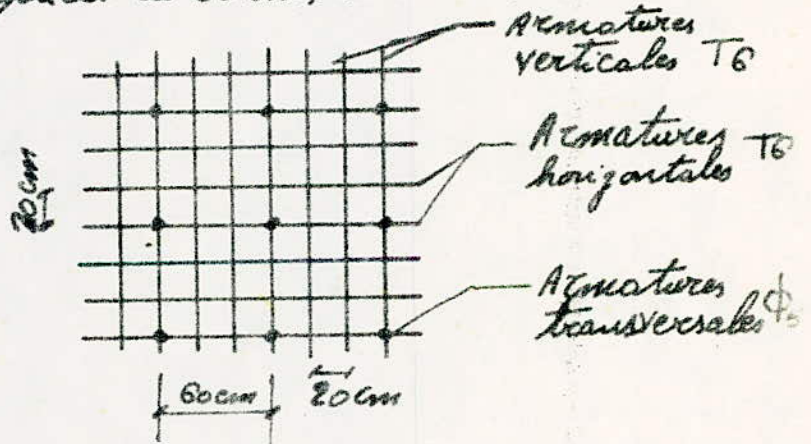 Armatures
verticales T6
Armatures T6
horizontales
20cm
Armatures
transversales ϕ5
60cm 20cm